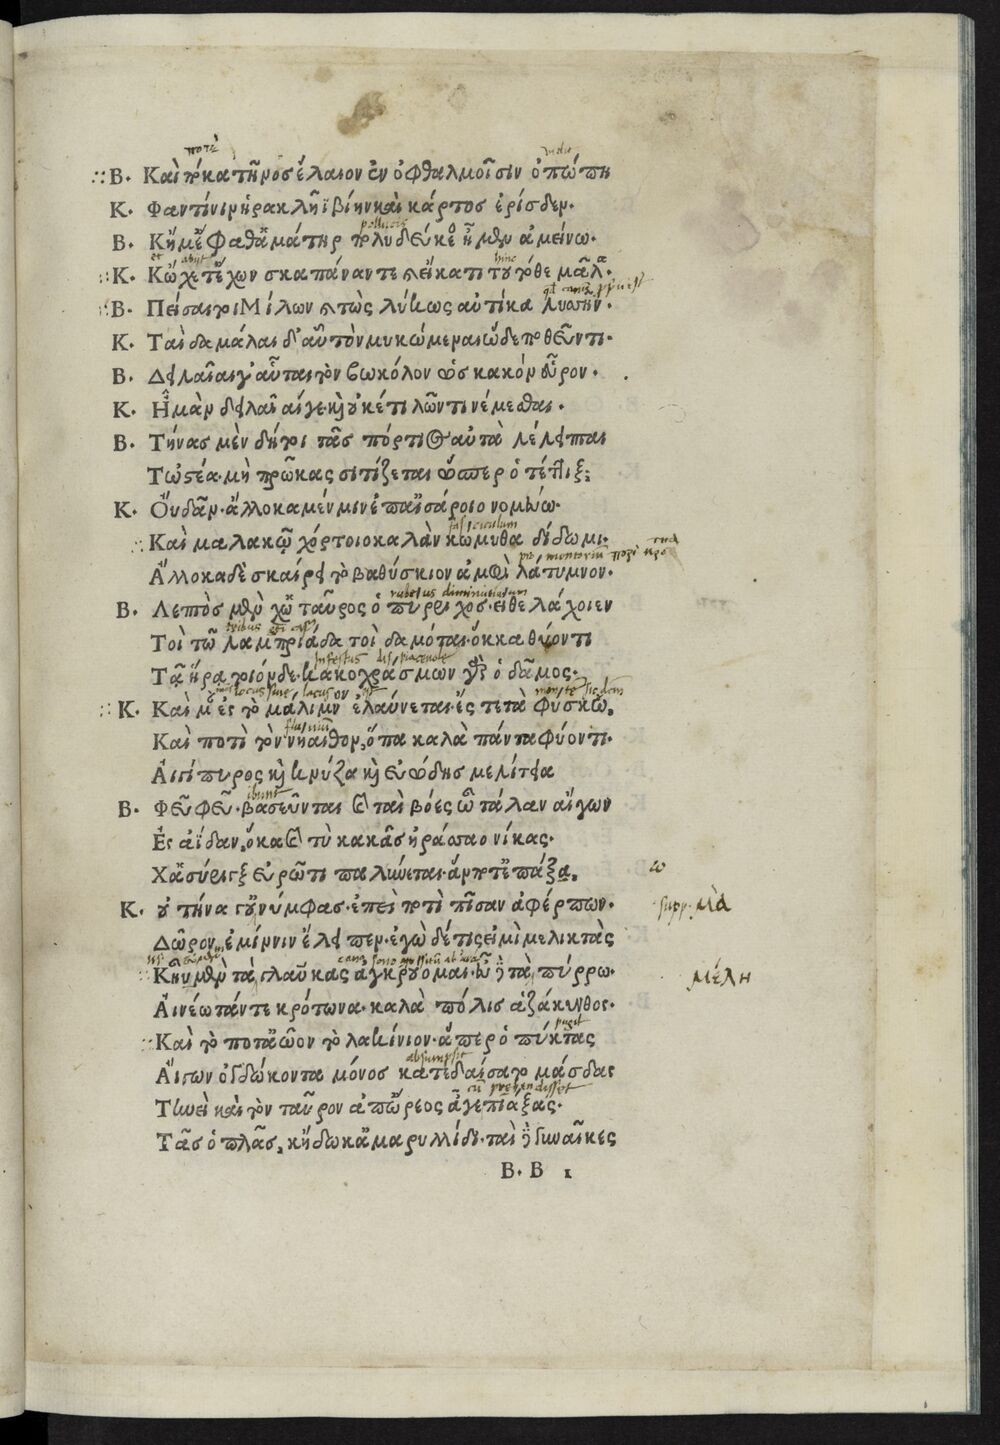 ποτὲ
vidit
Β. Καὶ πόκα τῆνος ἔλαιον ἐν ὀφθαλμοῖσιν ὀπώπη
Κ. Φαντί νιν ἡρακλῆϊ βίην καὶ κάρτος ἐρίσδεν.
pollucis
Β. Κἤμ' ἔφαθ' ἁ μάτηρ πολυδεύκεος ἦμεν ἀμείνω.
et abijt hinc
Κ. Κᾤχετ' ἔχων σκαπάναν τε καὶ εἴκατι τουτόθε μᾶλα.
Β. Πείσαι τοι Μίλων καὶ τὼς λύκως αὐτίκα λυσῆν.
Κ. Ταὶ δαμάλαι δ' αὐτὸν μυκώμεναι ὧδε ποθεῦντι.
Β. Δειλαῖαί γ' αὗται τὸν βωκόλον ὡς κακὸν εὗρον.
Κ. Ἦ μὰν δειλαῖαί γε. καὶ οὐκέτι λῶντι νέμεσθαι.
Β. Τήνας μὲν δή τοι τᾶς πόρτιος αὐτὰ λέλειπται
Τὠστέα. μὴ πρῶκας σιτίζεται ὥσπερ ὁ τέττιξ;
Κ. Οὐ δᾶν. ἀλλ' ὁκὰ μέν μιν ἐπ' αἰσάροιο νομεύω.
fasciculum
Καὶ μαλακῶ χόρτοιο καλὰν κώμυθα δίδωμι.
Ἄλλοκα δὲ σκαίρει τὸ βαθύσκιον ἀμφὶ λάτυμνον.
rubeus diminutivum
Β. Λεπτὸς μὲν χὠ ταῦρος ὁ πύρριχος. εἴθε λάχοιεν
Τοὶ τῶ λαμπριάδα τοὶ δαμόται. ὄκκα θύοντι
Τᾷ ἥρᾳ τοιόνδε. κακοχράσμων γὰρ ὁ δᾶμος.
Κ. Καὶ μὰν ἐς τὸ μάλιμνον ἐλαύνεται. ἔς τε τὰ φύσκω.
Καὶ ποτὶ τὸν νήαιθον, ὅπα καλὰ πάντα φύοντι.
Αἰγίπυρος καὶ κνύζα καὶ εὐώδης μελίτεια
ibunt
Β. Φεῦ φεῦ. βασεῦνται καὶ ταὶ βόες ὦ τάλαν αἴγων
Ἐς ἀΐδαν, ὅκα καὶ τὺ κακᾶς ἠράσσαο νίκας.
Χἁ σύριγξ εὐρῶτι παλύνεται. ἅν ποτ' ἐπάξα. ω
Κ. Οὐ τήνα γ' οὐ νύμφας. ἐπεὶ ποτὶ πῖσαν ἀφέρπων. supp. μὰ
Δῶρον ἐμίν νιν ἔλειπεν. ἐγὼ δέ τις εἰμὶ μελικτὰς
Κἢν μὲν τὰ γλαύκας ἀγκρούομαι. εὖ δὲ τὰ πύρρω. μέλη
Αἰνέω τάν τε κρότωνα. καλὰ πόλις ἁ ζάκυνθος.
pugil
Καὶ τὸ ποταῷον τὸ λακίνιον. ᾇπερ ὁ πύκτας
absumpsit
Αἴγων ὀγδώκοντα μόνος κατεδαίσατο μάσδας
cum prehendisset
Τηνεὶ καὶ τὸν ταῦρον ἀπ' ὤρεος ἆγε πιάξας.
Τᾶς ὁπλᾶς, κἤδωκ' ἀμαρυλλίδι. ταὶ δὲ γυναῖκες
Β. Β 1